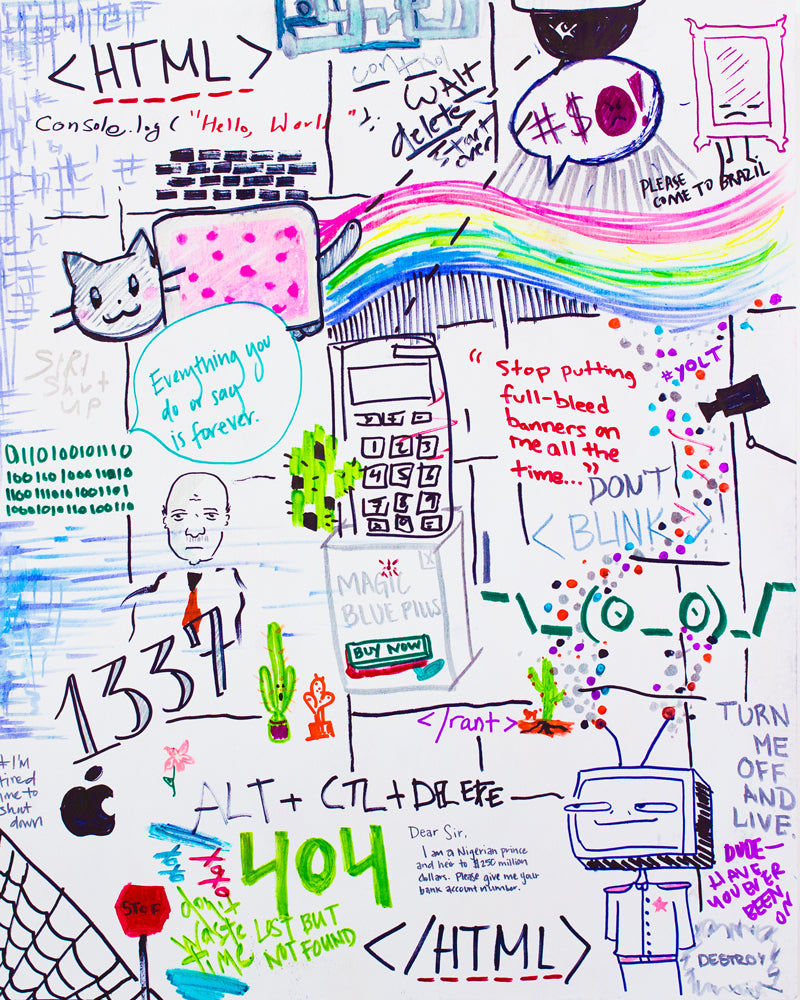 <HTML>
Console.log ( "Hello, World " );
control
WAlt
delete
start
over
#$!
PLEASE
COME TO BRAZIL
SIRI
Shut
UP
Everything you
do or say
is forever.
"Stop putting
full-bleed
banners on
me all the
time..."
#YOLT
DON'T
<BLINK>
1 2 3
4 5 6
011010010110
MAGIC
BLUE PILLS
X
BUY NOW
¯\_(ʘ_ʘ)_/¯
1337
</rant>
TURN
ME
OFF
AND
LIVE.
I'M
tired
time to
shut
down
ALT + CTL + DELETE
404
LOST BUT
NOT FOUND
Dear Sir,
I am a Nigerian prince
and heir to $250 million
dollars. Please give me your
bank account number.
DUDE—
HAVE
YOU EVER
BEEN
ON
YOYO
XOXO
STOP
don't
waste
time
</HTML>
DESTROY